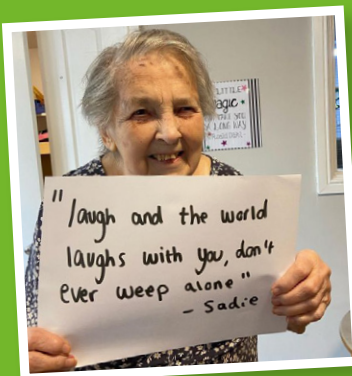 LITTLE
magic
YOU
LOVE
"laugh and the world
laughs with you, don't
ever weep alone"
- Sadie